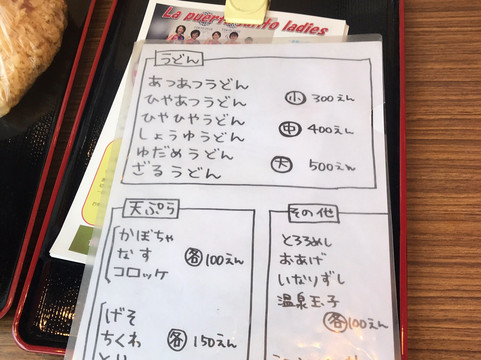 La puerta
ladies
うどん
あつあつうどん
ひやあつうどん
ひやひやうどん
しょうゆうどん
ゆだめうどん
ざるうどん
小 300えん
中 400えん
大 500えん
天ぷら
かぼちゃ
なす
コロッケ
各100えん
げそ
ちくわ
とり
各150えん
その他
とろろめし
おあげ
いなりずし
温泉玉子
各100えん